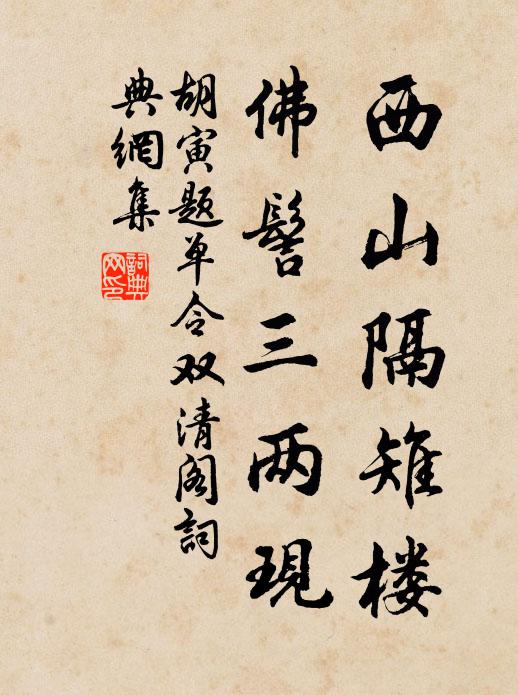 西山隔雉楼
佛髻三两現
胡寅题单令双清阁詞
典網集
詞典
网印